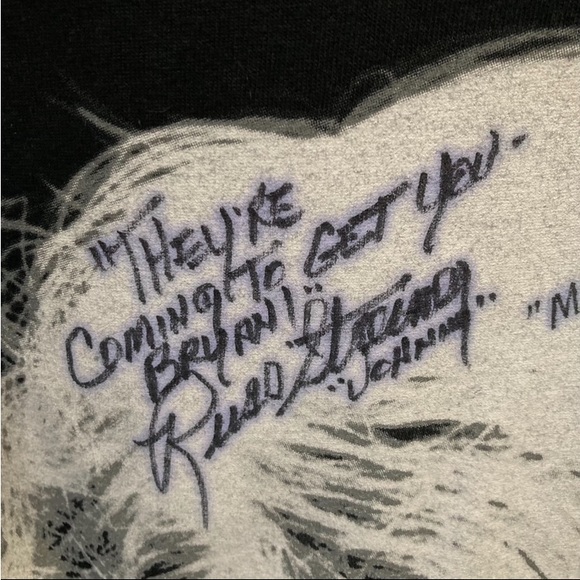 "THEY'RE
COMING TO GET YOU-
BRYAN!"
Russ Streiner
"JOHNNY"
"M